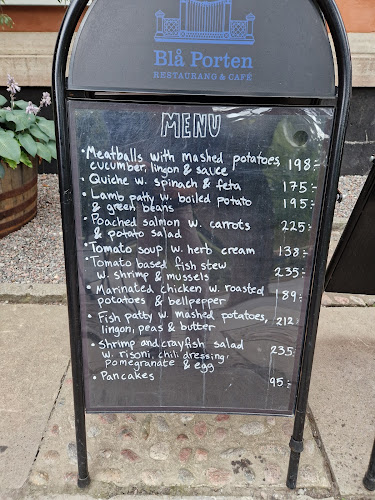 Blå Porten
RESTAURANG & CAFÉ
MENU
• Meatballs with mashed potatoes
cucumber, lingon & sauce 198:-
• Quiche w. spinach & feta 175:-
• Lamb patty w. boiled potato
& green beans 195:-
• Poached salmon w. carrots
& potato salad 225:-
• Tomato soup w. herb cream 138:-
• Tomato based fish stew
w. shrimp & mussels 235:-
• Marinated chicken w. roasted
potatoes & bellpepper 189:-
• Fish patty w. mashed potatoes,
lingon, peas & butter 212:-
• Shrimp and crayfish salad
w. risoni, chili dressing,
pomegranate & egg 235:-
• Pancakes 95:-